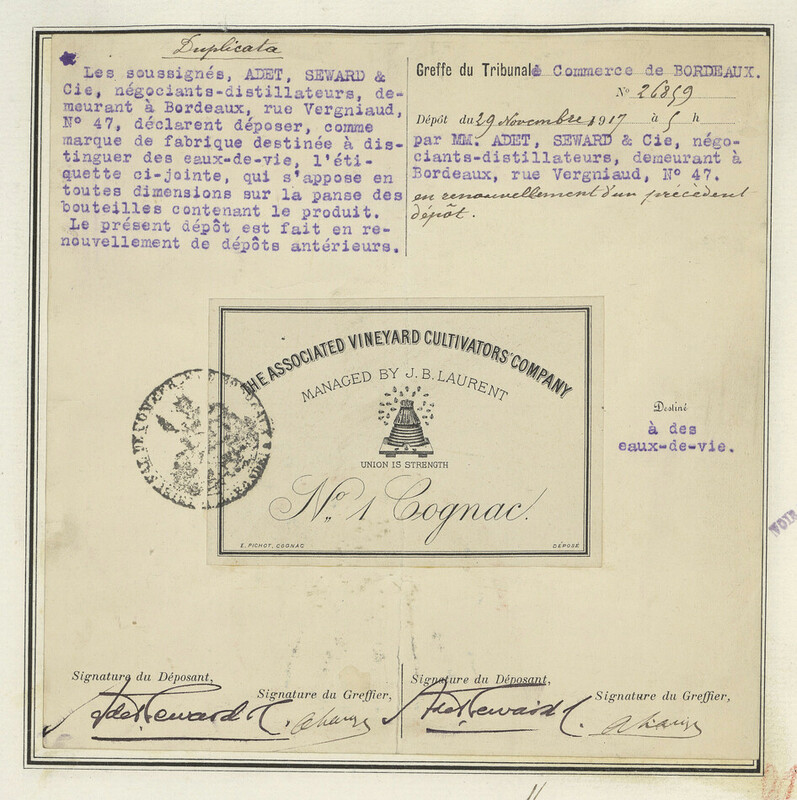 Duplicata
Les soussignés, ADET, SEWARD &
Cie, négociants-distillateurs, de-
meurant à Bordeaux, rue Vergniaud,
N° 47, déclarent déposer, comme
marque de fabrique destinée à dis-
tinguer des eaux-de-vie, l'éti-
quette ci-jointe, qui s'appose en
toutes dimensions sur la panse des
bouteilles contenant le produit.
Le présent dépôt est fait en re-
nouvellement de dépôts antérieurs.
Greffe du Tribunal de Commerce de BORDEAUX.
N° 26859
Dépôt du 29 Novembre 1917 à 5 h
par MM. ADET, SEWARD & Cie, négo-
ciants-distillateurs, demeurant à
Bordeaux, rue Vergniaud, N° 47.
en renouvellement d'un précédent
dépôt.
THE ASSOCIATED VINEYARD CULTIVATORS' COMPANY
MANAGED BY J. B. LAURENT
UNION IS STRENGTH
No. 1 Cognac.
E. PICHOT, COGNAC
DÉPOSÉ
Destiné
à des
eaux-de-vie.
NOIR
Signature du Déposant,
Signature du Greffier,
Adet Seward
Signature du Déposant,
Signature du Greffier,
Adet Seward